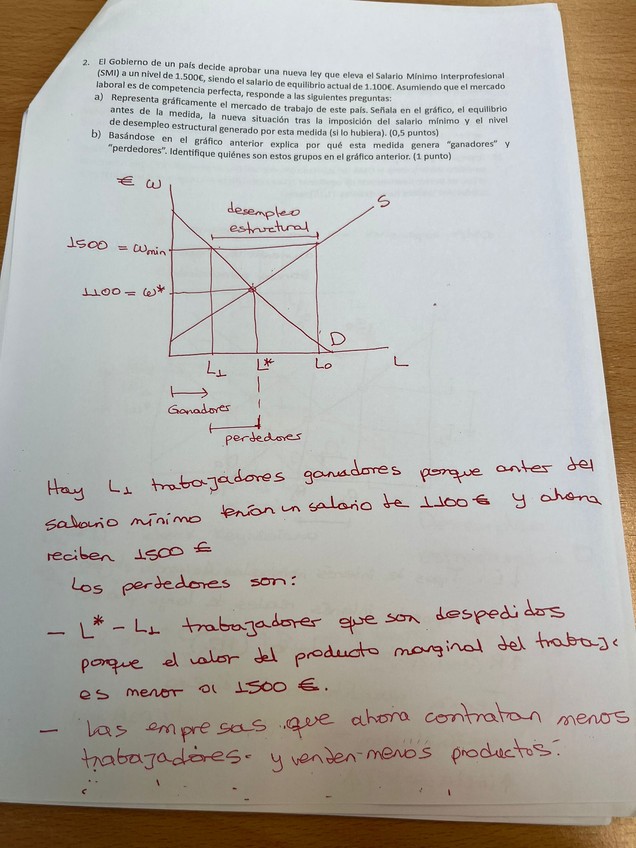 2. El Gobierno de un país decide aprobar una nueva ley que eleva el Salario Mínimo Interprofesional
(SMI) a un nivel de 1.500€, siendo el salario de equilibrio actual de 1.100€. Asumiendo que el mercado
laboral es de competencia perfecta, responde a las siguientes preguntas:
a) Representa gráficamente el mercado de trabajo de este país. Señala en el gráfico, el equilibrio
antes de la medida, la nueva situación tras la imposición del salario mínimo y el nivel
de desempleo estructural generado por esta medida (si lo hubiera). (0,5 puntos)
b) Basándose en el gráfico anterior explica por qué esta medida genera "ganadores" y
"perdedores". Identifique quiénes son estos grupos en el gráfico anterior. (1 punto)
€ ω
S
desempleo
estructural
1500 = ωmin
1100 = ω*
D
L1 L* Lo L
Ganadores
perdedores
Hay L1 trabajadores ganadores porque antes del
salario mínimo tenían un salario de 1100 € y ahora
reciben 1500 €
Los perdedores son:
- L* - L1 trabajadores que son despedidos
porque el valor del producto marginal del trabajo
es menor al 1500 €.
- Las empresas que ahora contratan menos
trabajadores. y venden menos productos.